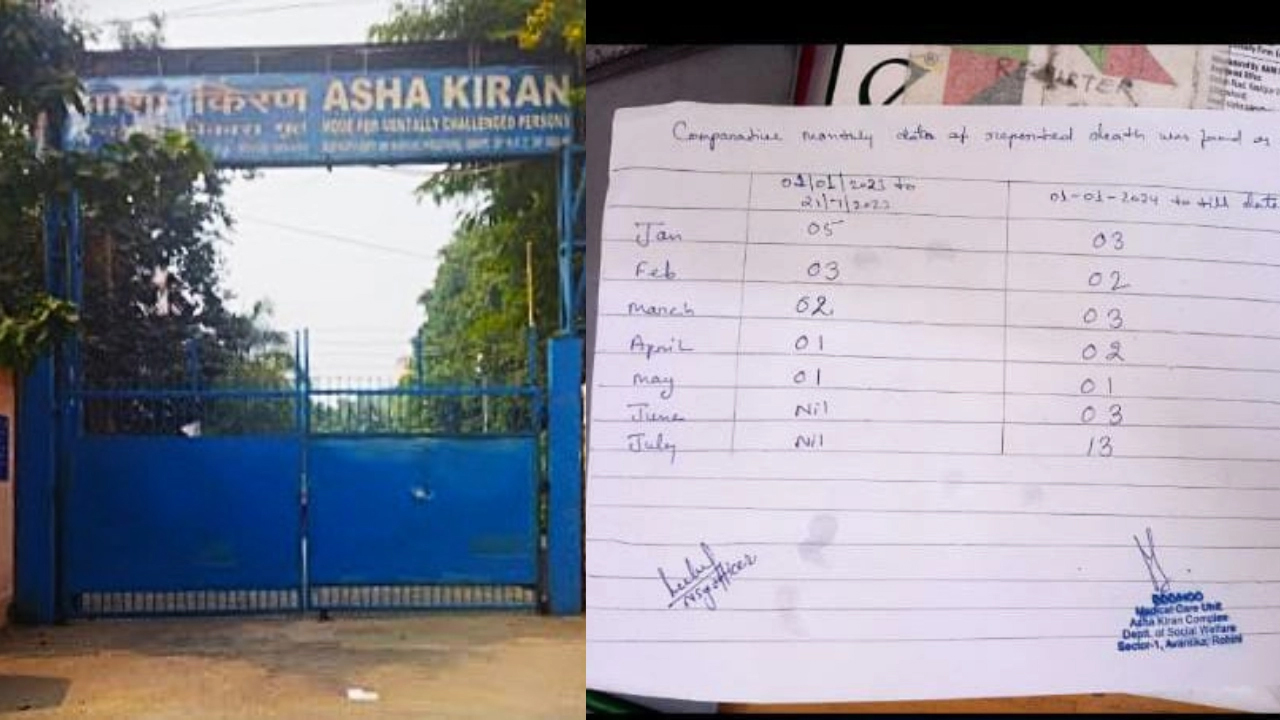 आशा किरण ASHA KIRAN
HOME FOR MENTALLY CHALLENGED PERSONS
REGISTER
Comparative monthly data of reported death was found as
01/01/2023 to
01-01-2024 to till date
Jan 05 03
Feb 03 02
March 02 03
April 01 02
May 01 01
June Nil 03
July Nil 13
Medical Care Unit
Asha Kiran Complex
Deptt. of Social Welfare
Sector-1, Avantika, Rohini